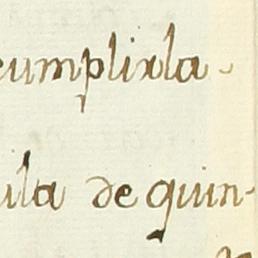 cumplirla.
ula de quin-